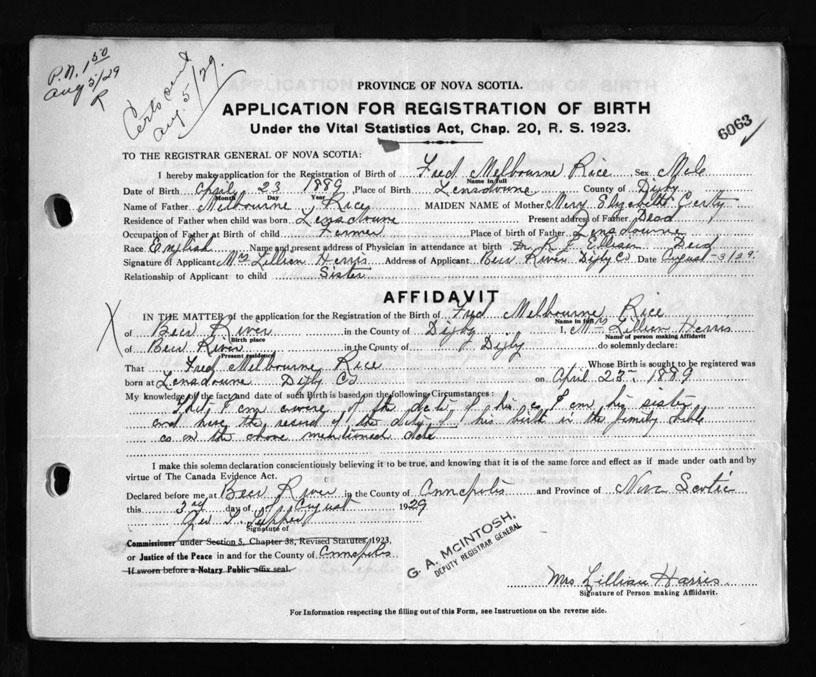 P.N. 1 50
Aug 5/29
R
Certs sent
Aug. 5/29.
PROVINCE OF NOVA SCOTIA.
APPLICATION FOR REGISTRATION OF BIRTH
Under the Vital Statistics Act, Chap. 20, R. S. 1923.
6063
TO THE REGISTRAR GENERAL OF NOVA SCOTIA:
I hereby make application for the Registration of Birth of Fred Melbourne Rice Sex Male
Name in full
Date of Birth April 23 1889, Place of Birth Lansdowne County of Digby
Month Day Year
Name of Father Melbourne Rice MAIDEN NAME of Mother Mary Elizabeth
Residence of Father when child was born Lansdowne Present address of Father Dead
Occupation of Father at Birth of child Farmer Place of birth of Father Lansdowne
Race English Name and present address of Physician in attendance at birth Dr. R. J. Ellison Dead
Signature of Applicant Mrs Lillian Harris Address of Applicant Bear River Digby Co Date August 3/29.
Relationship of Applicant to child Sister
AFFIDAVIT
IN THE MATTER of the application for the Registration of the Birth of Fred Melbourne Rice
Name in full
of Bear River in the County of Digby I, Mrs Lillian Harris
Birth place Name of person making Affidavit
of Bear River in the County of Digby do solemnly declare:
Present residence
That Fred Melbourne Rice Whose Birth is sought to be registered was
born at Lansdowne Digby Co on April 23 1889
My knowledge of the fact and date of such Birth is based on the following Circumstances:
That I am aware of the date of his as I am his sister
and have the record of the date of his birth in the family bible
as on the above mentioned date
I make this solemn declaration conscientiously believing it to be true, and knowing that it is of the same force and effect as if made under oath and by
virtue of The Canada Evidence Act.
Declared before me at Bear River in the County of Annapolis and Province of Nova Scotia
this 3rd day of August 1929
Geo
Signature of
Commissioner under Section 5, Chapter 38, Revised Statutes 1923,
or Justice of the Peace in and for the County of Annapolis
If sworn before a Notary Public affix seal.
G. A. McINTOSH,
DEPUTY REGISTRAR GENERAL
Mrs Lillian Harris
Signature of Person making Affidavit.
For Information respecting the filling out of this Form, see Instructions on the reverse side.